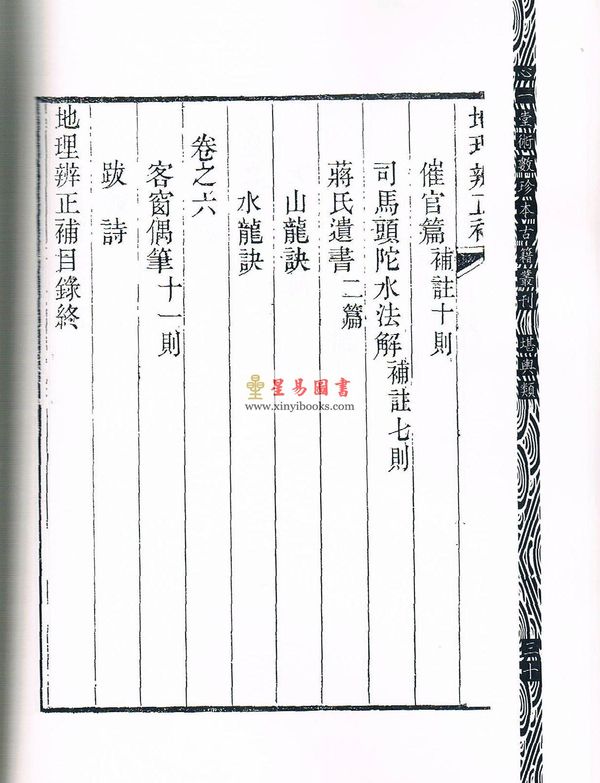 心一堂術數珍本古籍叢刊 堪輿類
三十
地理辨正補
催官篇補註十則
司馬頭陀水法解補註七則
蔣氏遺書二篇
山龍訣
水龍訣
卷之六
客窗偶筆十一則
跋詩
地理辨正補目錄終
星易圖書
www.xinyibooks.com